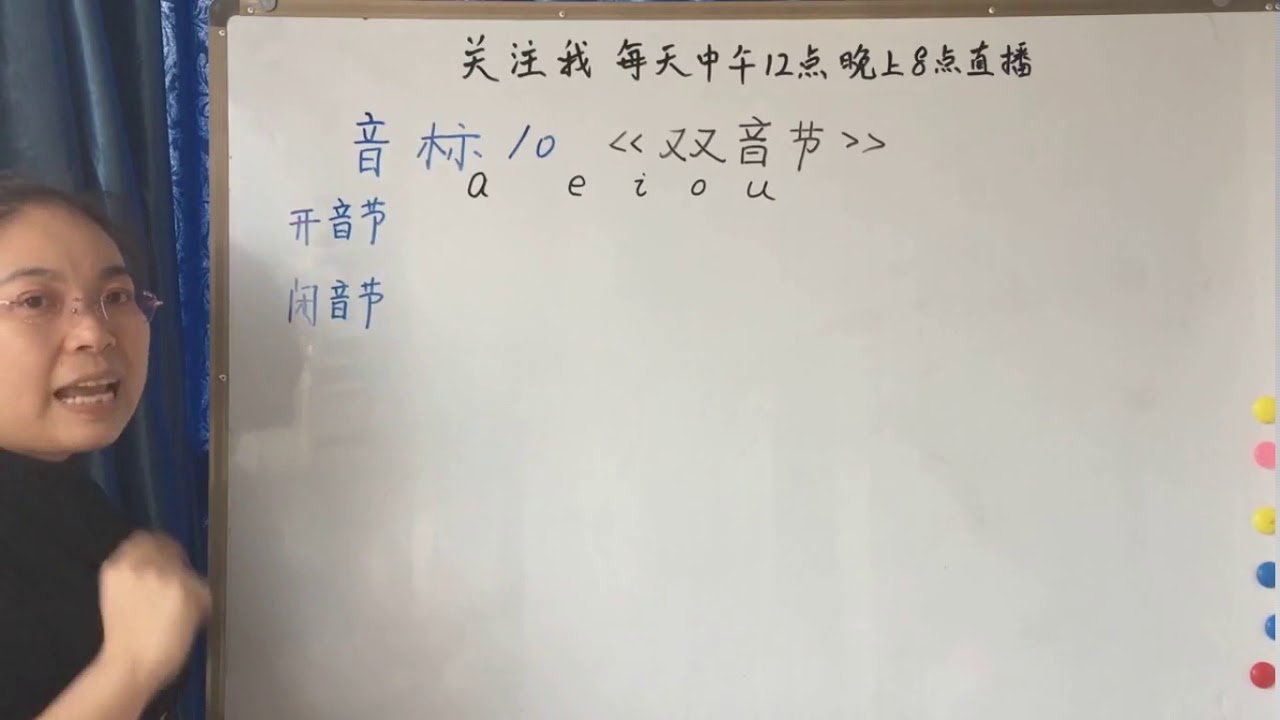 关注我 每天中午12点晚上8点直播
音标10 <<双音节>>
a e i o u
开音节
闭音节